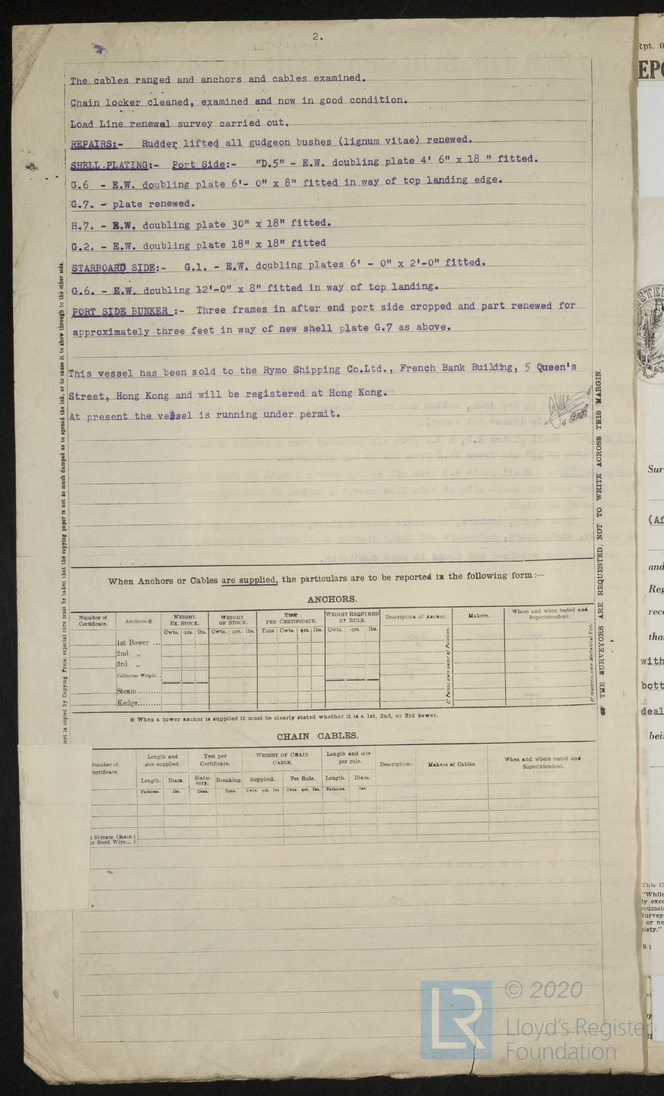 2.
The cables ranged and anchors and cables examined.
Chain locker cleaned, examined and now in good condition.
Load Line renewal survey carried out.
REPAIRS:- Rudder lifted all gudgeon bushes (lignum vitae) renewed.
SHELL PLATING:- Port Side:- "D.5" - E.W. doubling plate 4' 6" x 18 " fitted.
G.6 - E.W. doubling plate 6'- 0" x 8" fitted in way of top landing edge.
G.7. - plate renewed.
H.7. - E.W. doubling plate 30" x 18" fitted.
G.2. - E.W. doubling plate 18" x 18" fitted
STARBOARD SIDE:- G.1. - E.W. doubling plates 6' - 0" x 2'-0" fitted.
G.6. - E.W. doubling 12'-0" x 8" fitted in way of top landing.
PORT SIDE BUNKER :- Three frames in after end port side cropped and part renewed for
approximately three feet in way of new shell plate G.7 as above.
This vessel has been sold to the Rymo Shipping Co.Ltd., French Bank Building, 5 Queen's
Street, Hong Kong and will be registered at Hong Kong.
At present the vessel is running under permit.
When Anchors or Cables are supplied, the particulars are to be reported in the following form:—
ANCHORS.
Number of Certificate. Anchors※ WEIGHT. EX. STOCK. WEIGHT OF STOCK. TEST PER CERTIFICATE. WEIGHT REQUIRED BY RULE. Description of Anchor. Makers. Where and when tested and Superintendent.
Cwts. qrs. lbs. Cwts. qrs. lbs. Tons Cwts. qrs. lbs. Cwts. qrs. lbs.
1st Bower ...
2nd „
3rd „
Collective Weight.
Stream........
Kedge........
※ When a bower anchor is supplied it must be clearly stated whether it is a 1st, 2nd, or 3rd bower.
CHAIN CABLES.
Number of Certificate. Length and size supplied. Test per Certificate. WEIGHT OF CHAIN CABLE. Length and size per rule. Description. Makers of Cables. When and where tested and Superintendent.
Length. Diam. Statutory. Breaking. Supplied. Per Rule. Length. Diam.
Fathoms. Ins. Tons. Tons. Cwts. qrs. lbs Cwts. qrs. lbs. Fathoms. Ins.
Stream Chain
or Steel Wire...
THE SURVEYORS ARE REQUESTED, NOT TO WRITE ACROSS THIS MARGIN.
is copied by Copying Press, especial care must be taken that the copying paper is not so much damped as to spread the ink, or to cause it to show through to the other side.
Rpt. 9
LR
© 2020
Lloyd's Register
Foundation